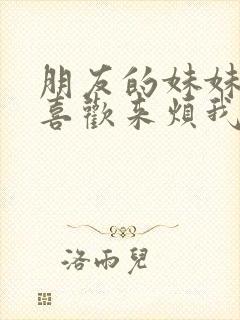 朋友的妹妹
喜歡来煩我
洛雨兒